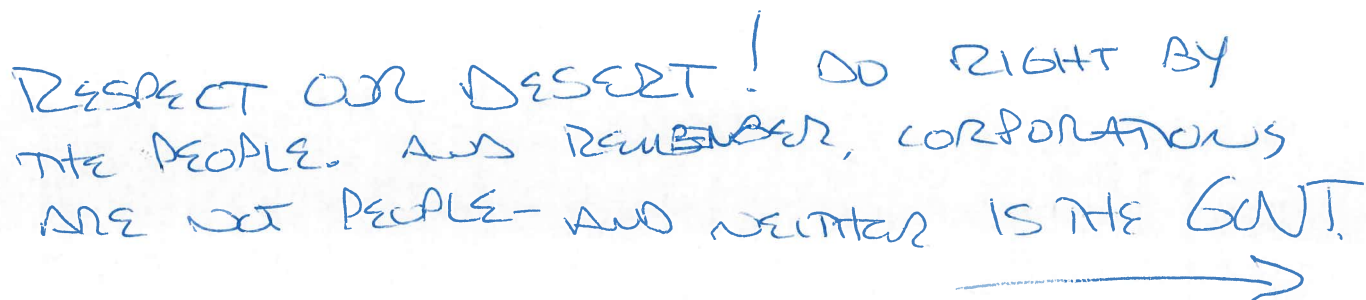 RESPECT OUR DESERT! DO RIGHT BY
THE PEOPLE. AND REMEMBER, CORPORATIONS
ARE NOT PEOPLE- AND NEITHER IS THE GOVT.